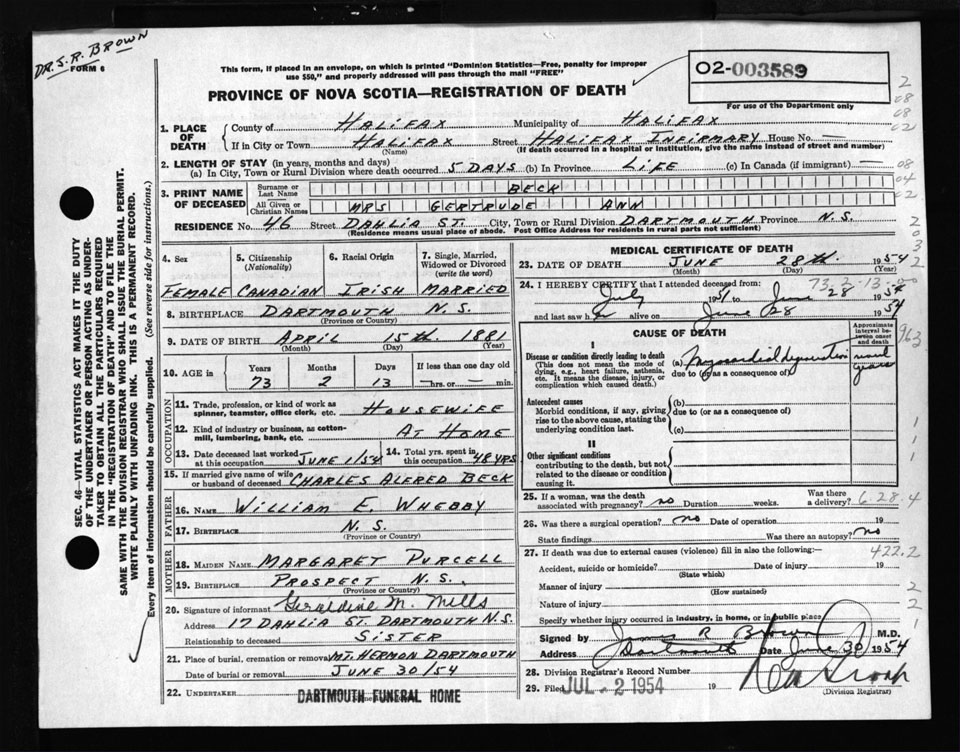 DR. J. R. BROWN
FORM 6
This form, if placed in an envelope, on which is printed "Dominion Statistics—Free, penalty for improper
use $50," and properly addressed will pass through the mail "FREE"
02-003589
For use of the Department only
PROVINCE OF NOVA SCOTIA—REGISTRATION OF DEATH
1. PLACE OF DEATH
County of HALIFAX Municipality of HALIFAX
If in City or Town HALIFAX Street HALIFAX INFIRMARY House No. —
(Name) (If death occurred in a hospital or institution, give the name instead of street and number)
2. LENGTH OF STAY (in years, months and days)
(a) In City, Town or Rural Division where death occurred 5 DAYS (b) In Province LIFE (c) In Canada (if immigrant) —
3. PRINT NAME OF DECEASED
Surname or Last Name BECK
All Given or Christian Names MRS GERTRUDE ANN
RESIDENCE No. 46 Street DAHLIA ST. City, Town or Rural Division DARTMOUTH Province N.S.
(Residence means usual place of abode. Post Office Address for residents in rural parts not sufficient)
4. Sex
FEMALE
5. Citizenship (Nationality)
CANADIAN
6. Racial Origin
IRISH
7. Single, Married, Widowed or Divorced (write the word)
MARRIED
8. BIRTHPLACE DARTMOUTH N.S.
(Province or Country)
9. DATE OF BIRTH APRIL 15th. 1881
(Month) (Day) (Year)
10. AGE in
Years Months Days If less than one day old
73 2 13 — hrs. or — min.
OCCUPATION
11. Trade, profession, or kind of work as spinner, teamster, office clerk, etc. HOUSEWIFE
12. Kind of industry or business, as cotton-mill, lumbering, bank, etc. AT HOME
13. Date deceased last worked at this occupation JUNE 1/54
14. Total yrs. spent in this occupation 48 YRS
15. If married give name of wife or husband of deceased CHARLES ALFRED BECK
FATHER
16. NAME WILLIAM E. WHEBBY
17. BIRTHPLACE N.S.
(Province or Country)
MOTHER
18. MAIDEN NAME MARGARET PURCELL
19. BIRTHPLACE PROSPECT N.S.
(Province or Country)
20. Signature of informant Geraldine M. Mills
Address 17 DAHLIA ST. DARTMOUTH N.S.
Relationship to deceased SISTER
21. Place of burial, cremation or removal MT. HERMON DARTMOUTH
Date of burial or removal JUNE 30/54
22. UNDERTAKER DARTMOUTH FUNERAL HOME
MEDICAL CERTIFICATE OF DEATH
23. DATE OF DEATH JUNE 28th. 1954
(Month) (Day) (Year)
24. I HEREBY CERTIFY that I attended deceased from: 73-2-13
July 1951 to June 28 1954
and last saw her alive on June 28 1954
CAUSE OF DEATH
Approximate interval between onset and death
I
Disease or condition directly leading to death
(This does not mean the mode of dying, e.g., heart failure, asthenia, etc. It means the disease, injury, or complication which caused death.)
(a) myocardial degeneration several years
due to (or as a consequence of)
Antecedent causes
Morbid conditions, if any, giving rise to the above cause, stating the underlying condition last.
(b)
due to (or as a consequence of)
(c)
II
Other significant conditions
contributing to the death, but not related to the disease or condition causing it.
25. If a woman, was the death associated with pregnancy? no Duration weeks. Was there a delivery? 6.28.4
26. Was there a surgical operation? no Date of operation 19
State findings Was there an autopsy? no
27. If death was due to external causes (violence) fill in also the following:— 422.2
Accident, suicide or homicide? Date of injury 19
(State which)
Manner of injury
(How sustained)
Nature of injury
Specify whether injury occurred in industry, in home, or in public place
Signed by James R Brown M.D.
Address Dartmouth Date June 30 1954
28. Division Registrar's Record Number
29. Filed JUL - 2 1954 19
(Division Registrar)
SEC. 46—VITAL STATISTICS ACT MAKES IT THE DUTY
OF THE UNDERTAKER OR PERSON ACTING AS UNDER-
TAKER TO OBTAIN ALL THE PARTICULARS REQUIRED
IN THE "REGISTRATION OF DEATH" AND TO FILE THE
SAME WITH THE DIVISION REGISTRAR WHO SHALL ISSUE THE BURIAL PERMIT.
WRITE PLAINLY WITH UNFADING INK. THIS IS A PERMANENT RECORD.
Every item of information should be carefully supplied. (See reverse side for instructions.)